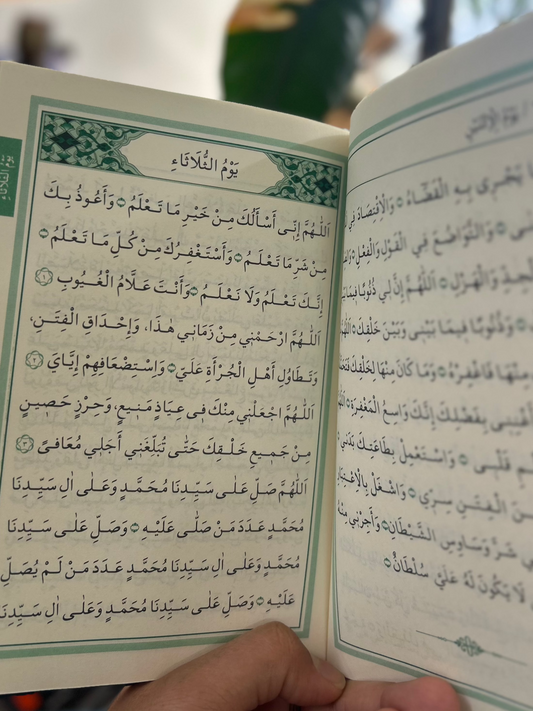 يَوْمُ الثُّلَاثَاءِ
اَللّٰهُمَّ إِنِّى أَسْأَلُكَ مِنْ خَيْرِ مَا تَعْلَمُ ۞ وَأَعُوذُ بِكَ
مِنْ شَرِّ مَا تَعْلَمُ ۞ وَأَسْتَغْفِرُكَ مِنْ كُلِّ مَا تَعْلَمُ ۞
إِنَّكَ تَعْلَمُ وَلَا نَعْلَمُ ۞ وَأَنْتَ عَلَّامُ الْغُيُوبِ ١
اَللّٰهُمَّ ارْحَمْنِي مِنْ زَمَانِي هٰذَا، وَإِحْدَاقِ الْفِتَنِ،
وَتَطَاوُلِ أَهْلِ الْجُرْأَةِ عَلَيَّ ۞ وَاسْتِضْعَافِهِمْ إِيَّايَ ٢
اَللّٰهُمَّ اجْعَلْنِي مِنْكَ فِى عِيَاذٍ مَنِيعٍ، وَحِرْزٍ حَصِينٍ
مِنْ جَمِيعِ خَلْقِكَ حَتّٰى تُبَلِّغَنِي أَجَلِي مُعَافىً ٣
اَللّٰهُمَّ صَلِّ عَلٰى سَيِّدِنَا مُحَمَّدٍ وَعَلٰى اٰلِ سَيِّدِنَا
مُحَمَّدٍ عَدَدَ مَنْ صَلّٰى عَلَيْهِ ۞ وَصَلِّ عَلٰى سَيِّدِنَا
مُحَمَّدٍ وَعَلٰى اٰلِ سَيِّدِنَا مُحَمَّدٍ عَدَدَ مَنْ لَمْ يُصَلِّ
عَلَيْهِ ۞ وَصَلِّ عَلٰى سَيِّدِنَا مُحَمَّدٍ وَعَلٰى اٰلِ سَيِّدِنَا
يَوْمُ الثُّلَاثَاءِ
يَجْرِى بِهِ الْقَضَاءُ ۞ وَالْاِقْتِصَادَ فِي
۞ وَالتَّوَاضُعَ فِي الْقَوْلِ وَالْفِعْلِ ۞
وَالْهَزْلِ ۞ اَللّٰهُمَّ إِنَّ لِي ذُنُوبًا فِيمَا
۞ وَذُنُوبًا فِيمَا بَيْنِى وَبَيْنَ خَلْقِكَ ۞
مِنْهَا فَاغْفِرْهُ ۞ وَمَا كَانَ مِنْهَا لِخَلْقِكَ
بِفَضْلِكَ إِنَّكَ وَاسِعُ الْمَغْفِرَةِ ۞
قَلْبِى ۞ وَاسْتَعْمِلْ بِطَاعَتِكَ
مِنَ الْفِتَنِ سِرِّي ۞ وَاشْغَلْ بِالْاِعْتِبَارِ
شَرَّ وَسَاوِسِ الشَّيْطَانِ ۞ وَأَجِرْنِي مِنْهُ
لَا يَكُونَ لَهُ عَلَيَّ سُلْطَانٌ ۞